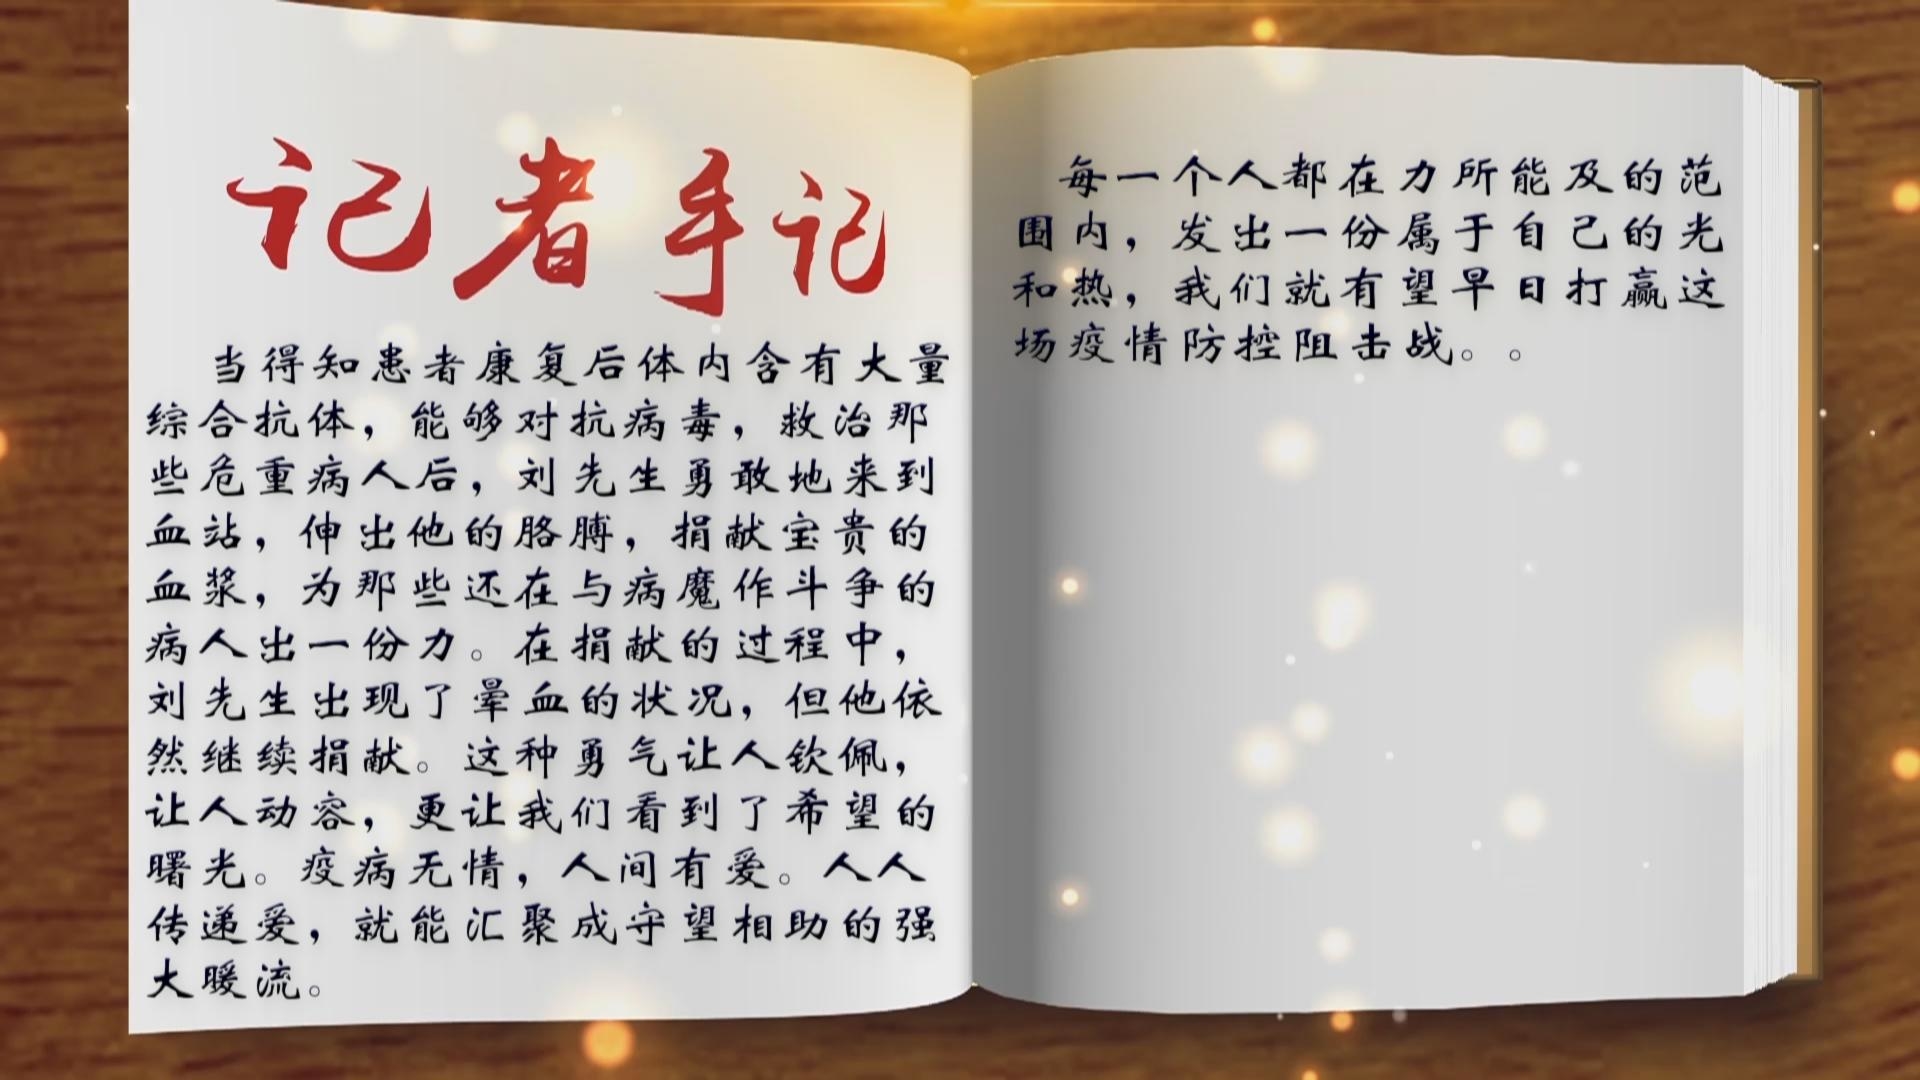 记者手记
当得知患者康复后体内含有大量
综合抗体，能够对抗病毒，救治那
些危重病人后，刘先生勇敢地来到
血站，伸出他的胳膊，捐献宝贵的
血浆，为那些还在与病魔作斗争的
病人出一份力。在捐献的过程中，
刘先生出现了晕血的状况，但他依
然继续捐献。这种勇气让人钦佩，
让人动容，更让我们看到了希望的
曙光。疫病无情，人间有爱。人人
传递爱，就能汇聚成守望相助的强
大暖流。
每一个人都在力所能及的范
围内，发出一份属于自己的光
和热，我们就有望早日打赢这
场疫情防控阻击战。。